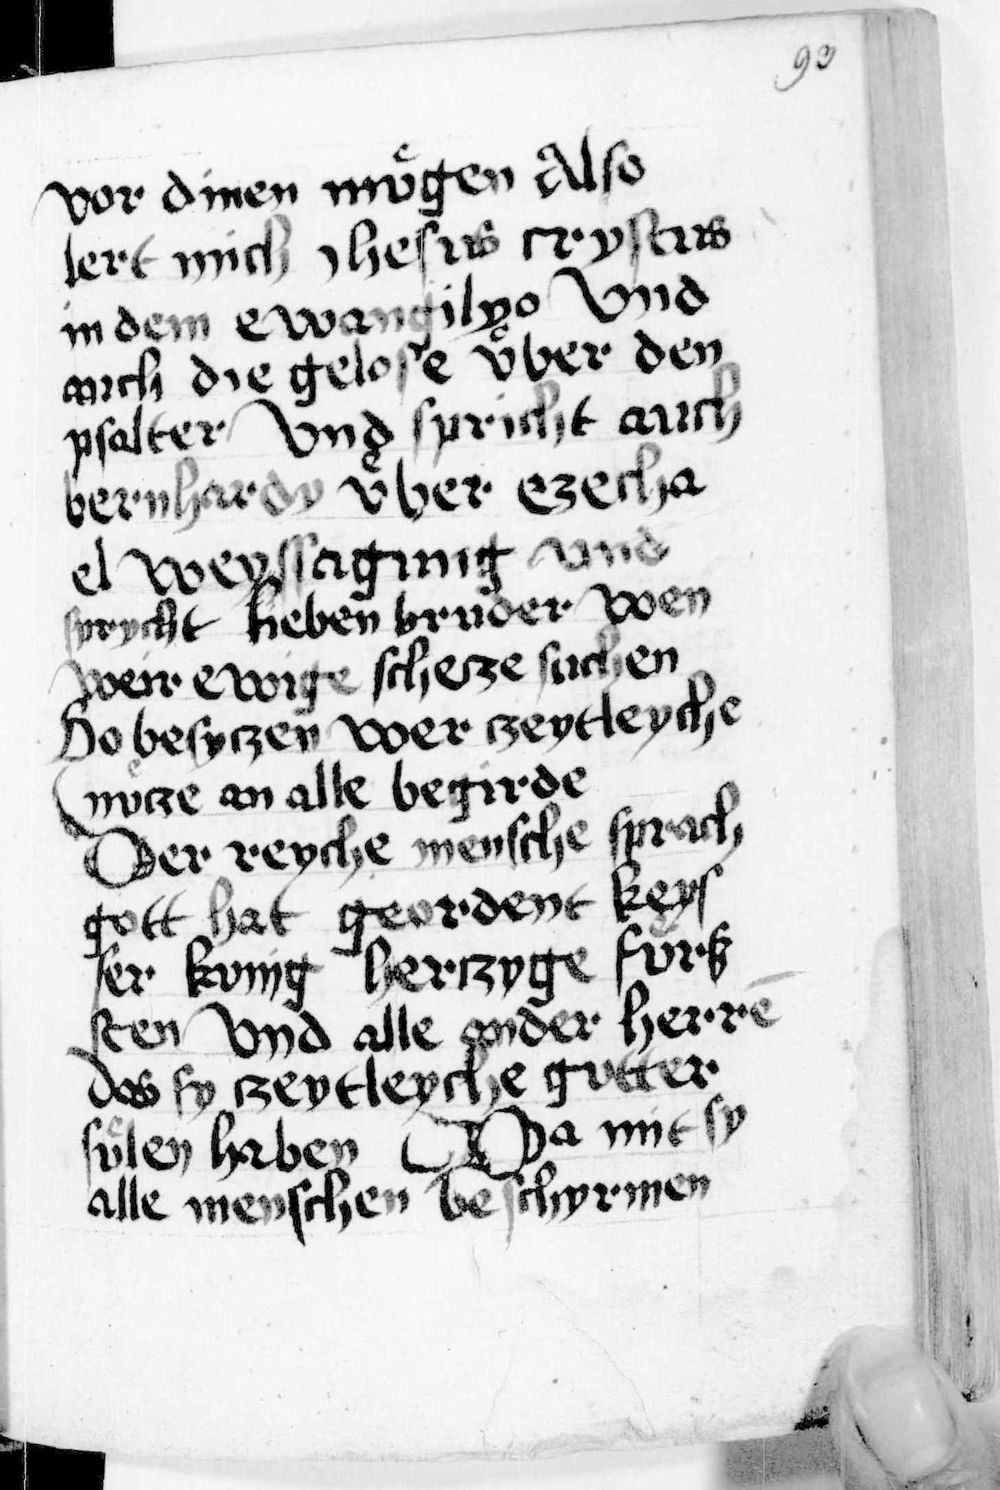 93
vor dinen mu̇gen Also
lert mich jhesus crystus
in dem ewangilyo Vnd
auch die gelose v̊ber den
psalter Vnd spricht auch
bernhardy v̊ber ezecha
el weyssagung vnd
sprycht lieben bruder wen
weir ewige schecze suchen
So besyczen wer czeytleyche
nůcze an alle begirde
Der reyche mensche sprach
gott hat geordent keys
ser kunig herczyge fůrs
sten Vnd alle ander herrē
das sy czeytleyche gutter
sůlen haben Da mit sy
alle menschen beschyrmen